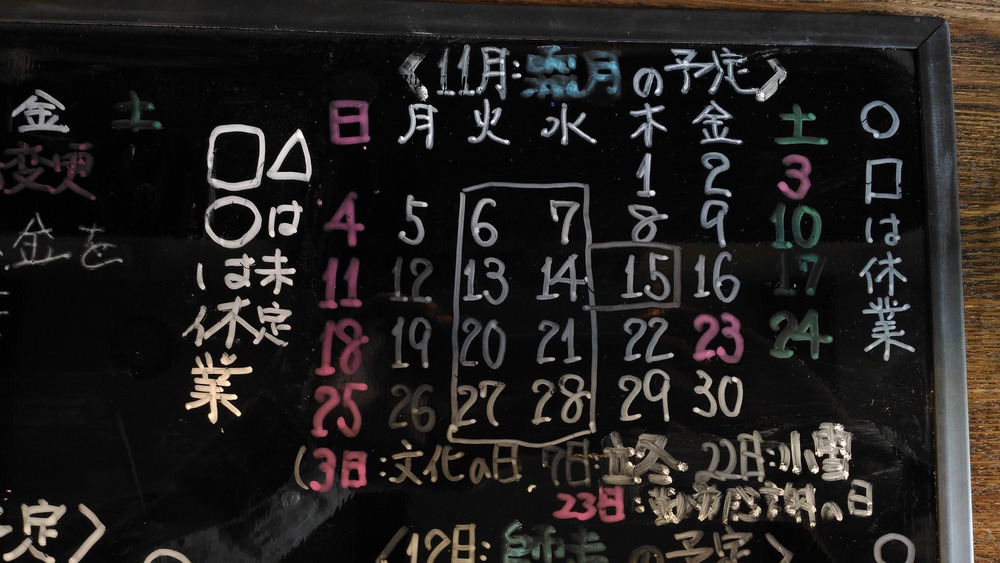 金 土
変更
金を
□△
○は
は未
休定
業
〈11月:霜月の予定〉
日 月 火 水 木 金 土
1 2 3
4 5 6 7 8 9 10
11 12 13 14 15 16 17
18 19 20 21 22 23 24
25 26 27 28 29 30
(3日:文化の日 7日:立冬 22日:小雪
23日:勤労感謝の日
○
□
は
休
業
予定〉
〈12月:師走の予定〉